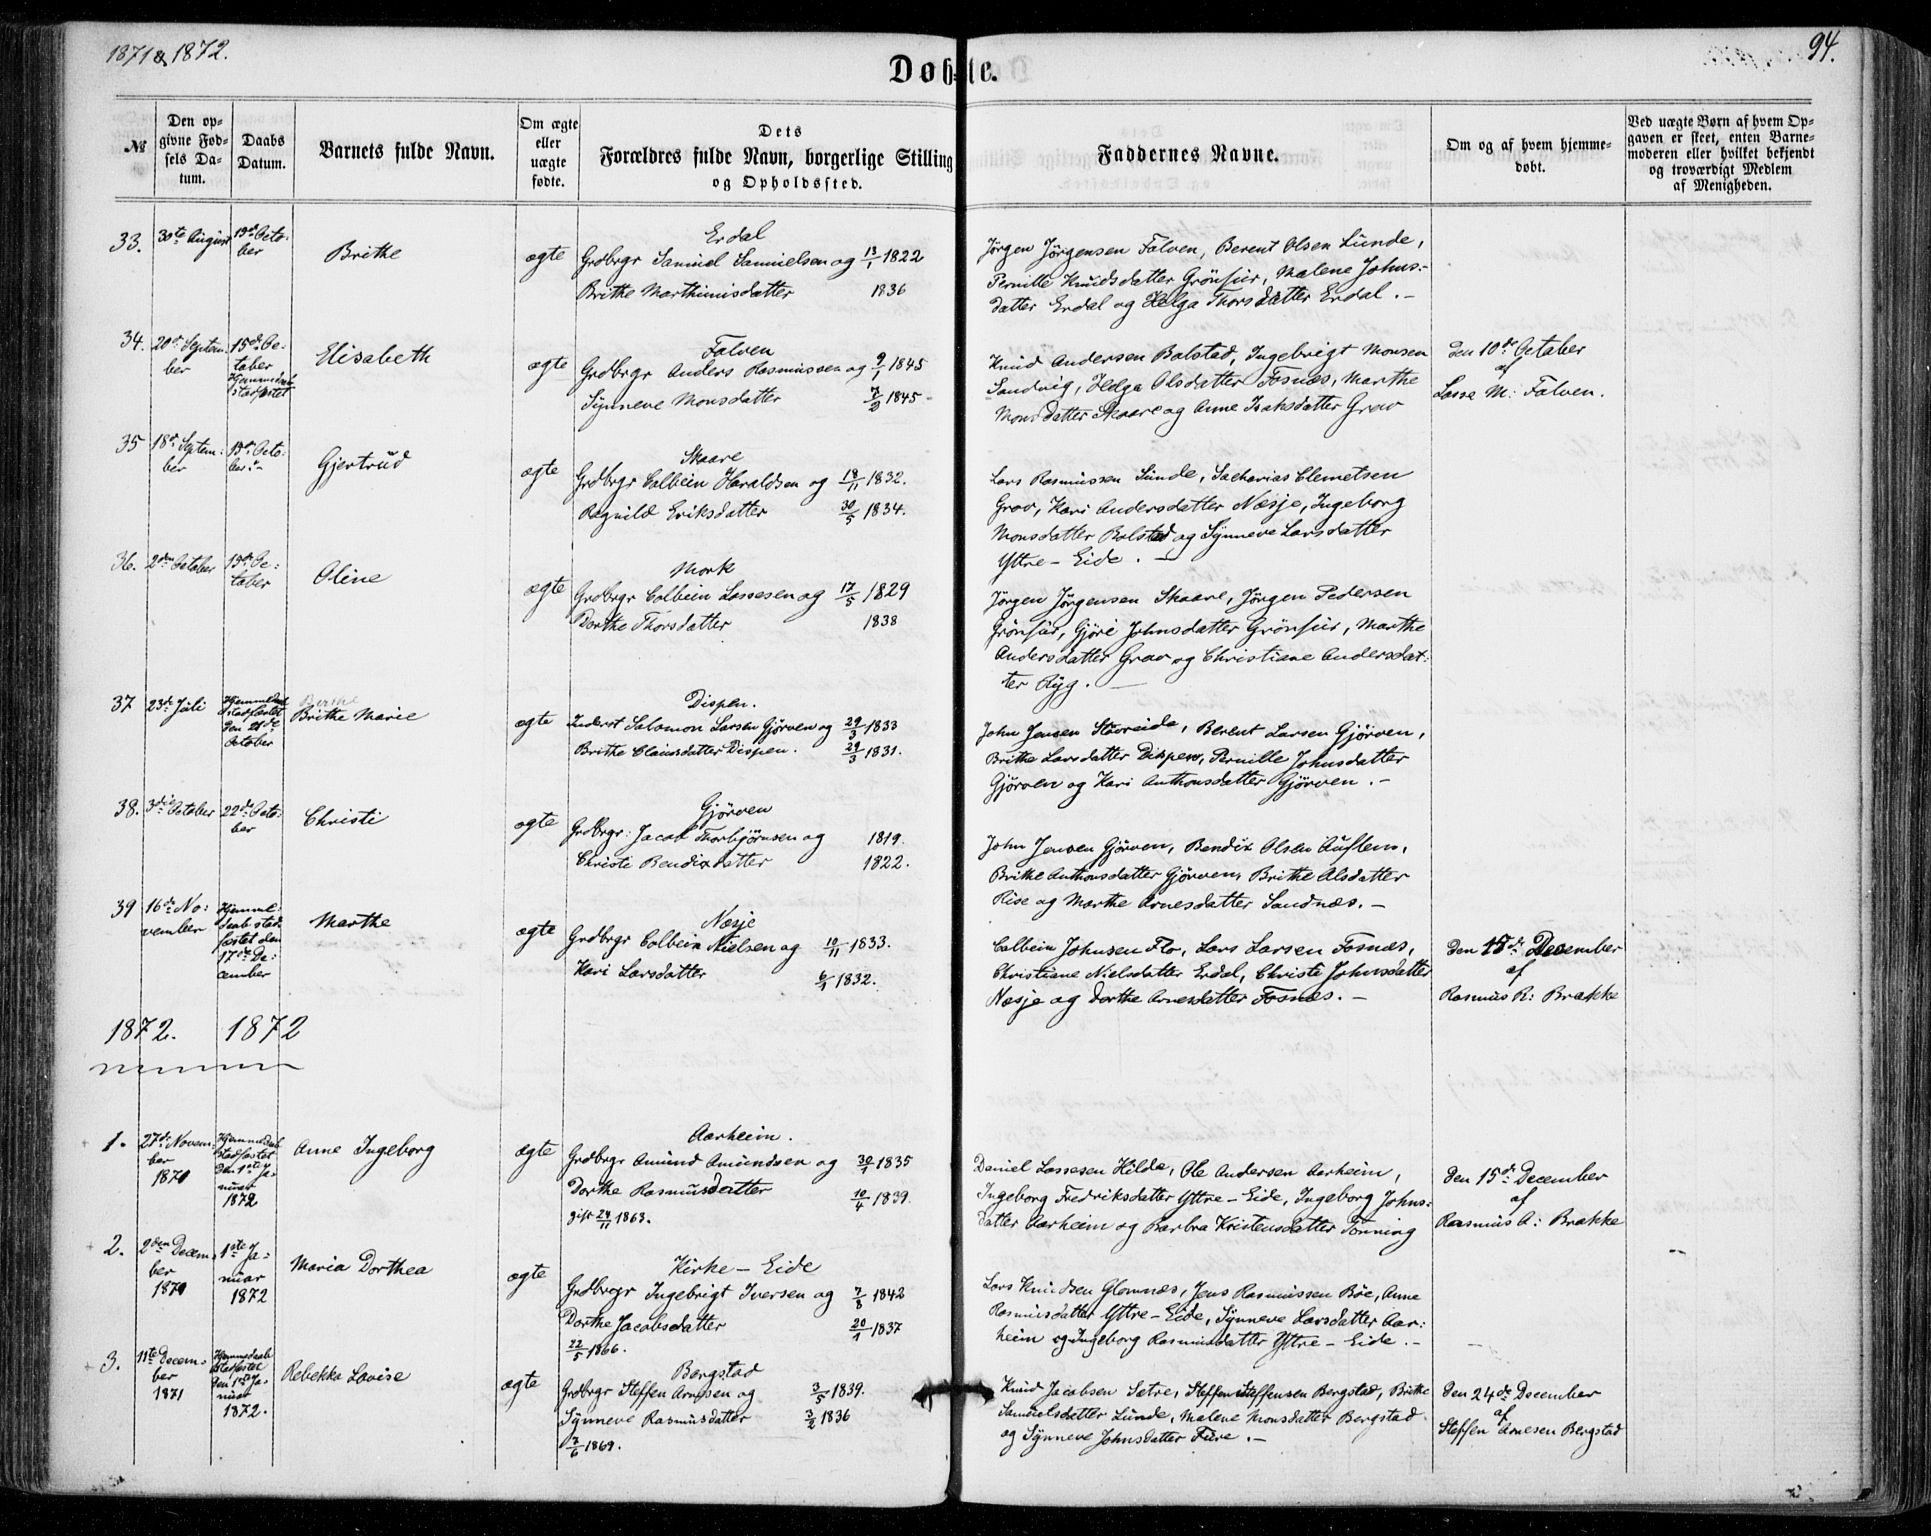 1871 & 1872.
Døbte.
94.
№
Den opgivne Fødsels Datum.
Daabs Datum.
Barnets fulde Navn.
Om ægte eller uægte fødte.
Dets Forældres fulde Navn, borgerlige Stilling og Opholdssted.
Faddernes Navne.
Om og af hvem hjemmedøbt.
Ved uægte Børn af hvem Opgaven er skeet, enten Barnemoderen eller hvilket bekjendt og troværdigt Medlem af Menigheden.
33.
30te August
15de Octo:
ber
Brithe
ægte
Erdal
Grdbrgr Samuel Samuelsen og 13/1 1822
Brithe Marthinusdatter 1836
Jørgen Jørgensen Falven, Berent Olsen Lunde,
Pernitte Knudsdatter Grønfur, Malene Johns:
datter Erdal og Helga Thorsdatter Erdal. –
34.
20de Septem:
ber
15de Oc:
tober
Hjemmedaab
stadfæstet
Elisabeth
ægte
Falven
Grdbrgr Anders Rasmussen og 9/1 1845
Synneve Monsdatter 7/2 1845
Knud Andersen Bolstad, Ingebrigt Monsen
Sandvig, Helga Olsdatter Fosnæs, Marthe
Monsdatter Skaare og Anne Isaksdatter Grov
Den 10de October
af
Lasse M: Falven.
35
18de Septem:
ber
15de Octo:
ber. –
Gjertrud
ægte
Skaare
Grdbrgr Colbein Haraldsen og 18/11 1832.
Ragnild Eriksdatter 30/5 1834.
Lars Rasmussen Lunde, Sacharias Clemetsen
Grov, Kari Andersdatter Næsje, Ingeborg
Monsdatter Bolstad og Synneve Larsdatter
Yttre – Eide. –
36.
2den October
15de Oc:
tober
Oline
ægte
Mork
Grdbrgr Colbein Lassesen og 17/5 1829
Dorthe Thorsdatter 1838
Jørgen Jørgensen Skaare, Jørgen Pedersen
Grønfur, Gjøri Johnsdatter Grønfur, Marthe
Andersdatter Grov og Christiane Andersdat:
ter Ryg. –
37
23de Juli
Hjemmedaab
stadfæstet
den 21de
October
Brithe Marie
ægte
Dispen.
Inderst Salomon Larsen Gjørven og 29/3 1833
Brithe Clausdatter Dispen. 29/3 1831.
John Jensen Støvreide, Berent Larsen Gjørven,
Brithe Larsdatter Dispen, Pernille Johnsdatter
Gjørven og Kari Anthonsdatter Gjørven. –
38.
3die October
22de Octo:
ber
Christi
ægte
Gjørven
Grdbrgr: Jacob Thorbjørnsen og 1819.
Christi Bendixdatter 1822.
John Jensen Gjørven, Bendix Olsen Auflem,
Brithe Anthonsdatter Gjørven, Brithe Olsdatter
Rise og Marthe Arnesdatter Sandnæs. –
39
16de No:
vember
Hjemme
daab stad
fæstet den
17de De:
cember
Marthe
ægte
Næsje
Grdbrgr Colbein Nielsen og 10/11 1833.
Kari Larsdatter 6/1 1832.
Colbein Johnsen Flo, Lars Larsen Fosnæs,
Christiane Nielsdatter Erdal, Christi Johnsdatter
Næsje og Dorthe Arnesdatter Fosnæs. –
Den 15de December
af
Rasmus R: Brakke
1872. 1872
1.
27de Novem:
ber
1871
Hjemmedaab
stadfæstet
den 1ste Ja:
nuar
1872
Anne Ingeborg
ægte
Aarheim.
Grdbrgr Amund Amundsen og 30/1 1835
Dorthe Rasmusdatter 10/4 1839.
gift 24/11 1863.
Daniel Lassesen Hilde, Ole Andersen Aarheim,
Ingeborg Fredriksdatter Yttre – Eide, Ingeborg Johns:
datter Aarheim og Barbra Kristensdatter Tonning
Den 15de December
af
Rasmus A: Brakke
2.
2den Decem:
ber
1871
1ste Ja:
nuar
1872
Maria Dorthea
ægte
Kirke – Eide
Grdbrgr Ingebrigt Iversen og 7/8 1842
Dorthe Jacobsdatter 20/1 1837
22/5 1866.
Lars Knudsen Glomnæs, Jens Rasmussen Bøe, Anne
Rasmusdatter Yttre – Eide, Synneve Larsdatter Aar:
heim og Ingeborg Rasmusdatter Yttre – Eide. –
3.
11te Decem:
ber
1871
Hjemmedaab
stadfæstet
den 1ste Ja:
nuar
1872.
Rebekka Lovise
ægte
Bergstad
Grdbrgr Steffen Arnesen og 3/5 1839.
Synneve Rasmusdatter 3/2 1836
7/6 1869.
Knud Jacobsen Sætre, Steffen Steffensen Bergstad, Brithe
Samuelsdatter Lunde, Malene Monsdatter Bergstad
og Synneve Johnsdatter Fure. –
Den 24de December
af
Steffen Arnesen Bergstad